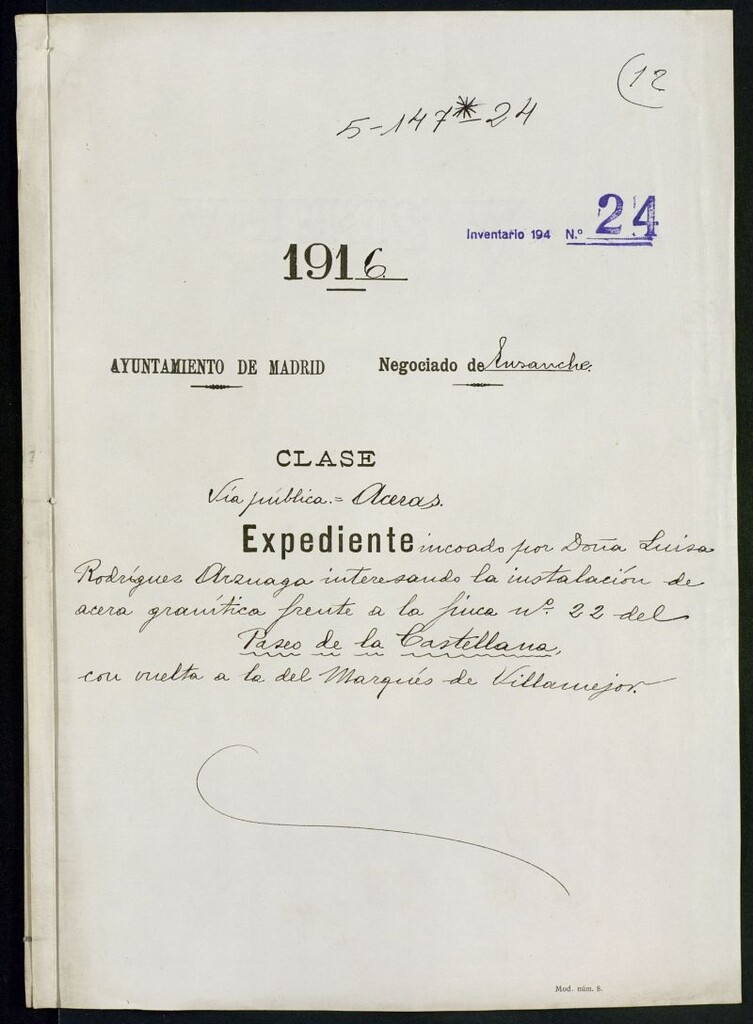 (12
5-147*-24
Inventario 194 N.º 24
1916
AYUNTAMIENTO DE MADRID Negociado de Ensanche.
CLASE
Vía pública.= Aceras.
Expediente incoado por Doña Luisa
Rodríguez Arzuaga interesando la instalación de
acera granítica frente a la finca nº. 22 del
Paseo de la Castellana,
con vuelta a la del Marqués de Villamejor.
Mod. núm. 8.